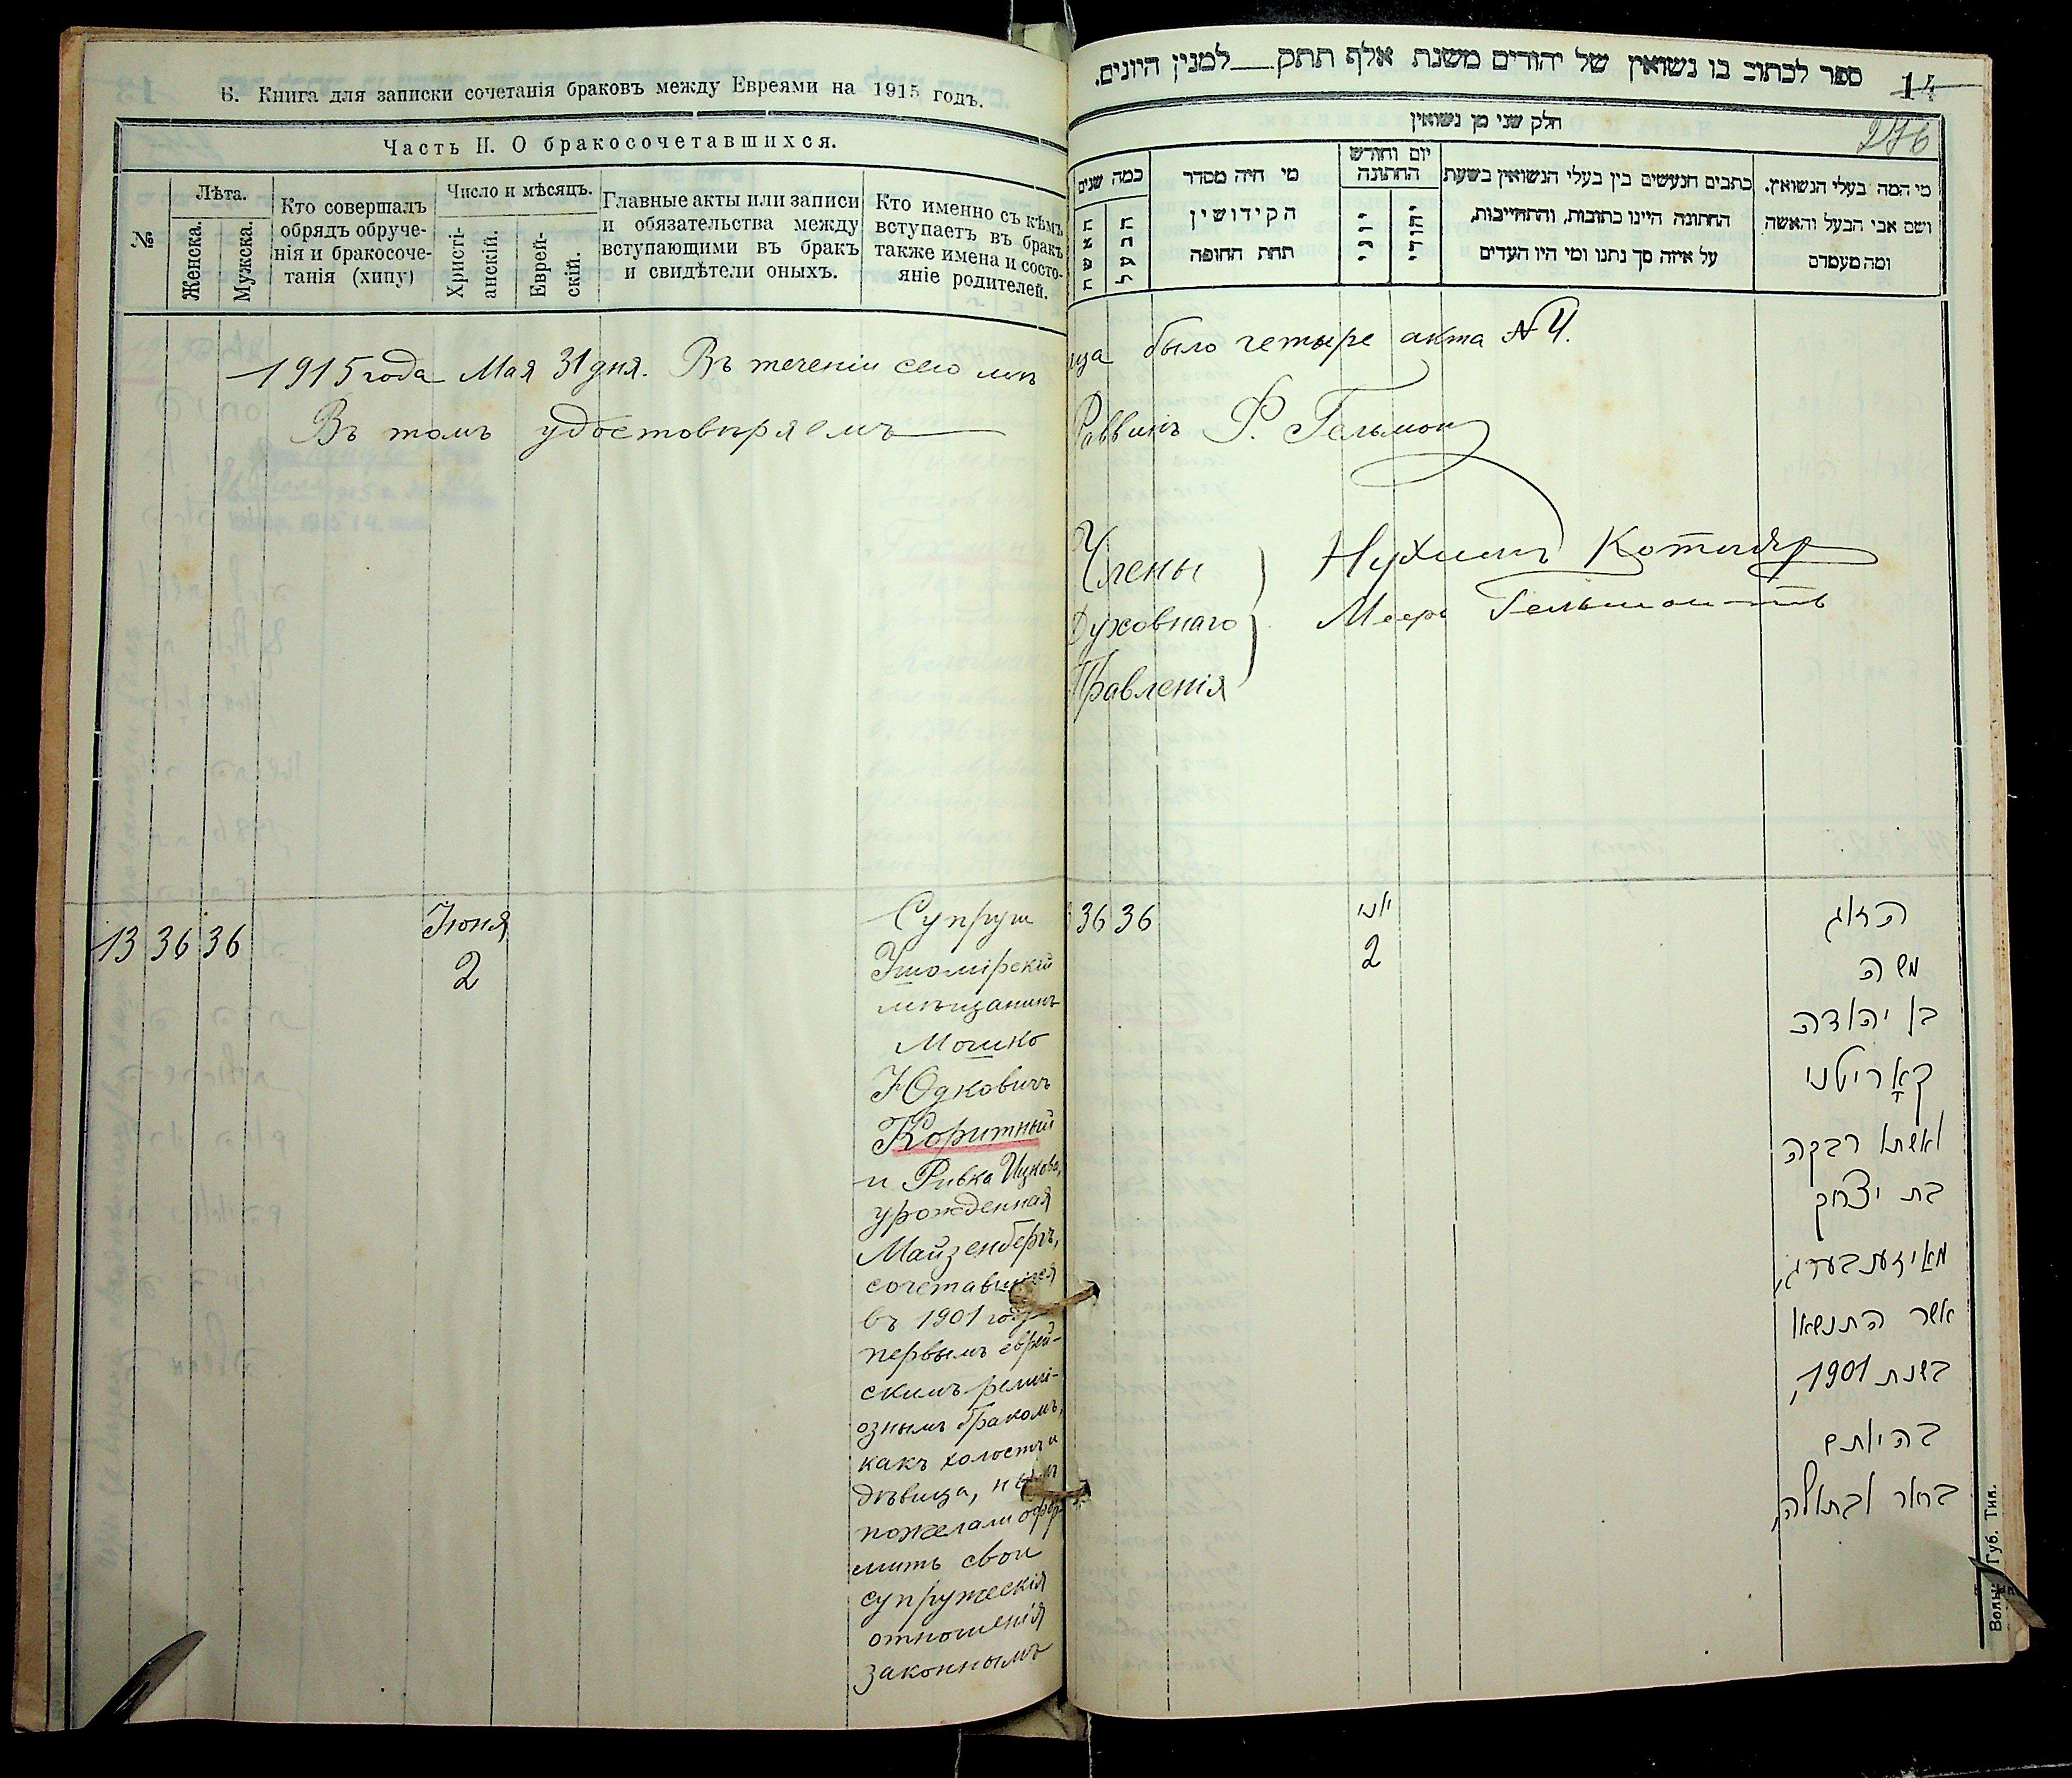 Б. Книга для записки сочетанія браковъ между Евреями на 1915 годъ.
Часть II. О бракосочетавшихся.
№
Лѣта.
Женска.
Мужска.
Кто совершалъ
обрядъ обруче-
нія и бракосоче-
танія (хипу)
Число и мѣсяцъ.
Христі-
анскій.
Еврей-
скій.
Главные акты или записи
и обязательства между
вступающими въ бракъ
и свидѣтели оныхъ.
Кто именно съ кѣмъ
вступаетъ въ бракъ
также имена и состо-
яніе родителей.
1915 года Мая 31 дня. Въ теченіи сего мѣс
Въ томъ удостовѣряемъ
13 36 36
Іюня
2
Супруги
Ушомірскій
мѣщанинъ
Мошко
Юдковичъ
Коритный
и Ривка Ицкова,
урожденная
Майзенбергъ,
сочетавшіеся
въ 1901 году
первымъ еврей-
скимъ религі-
ознымъ бракомъ,
какъ холостъ и
дѣвица,
пожелали офор
мить свои
супружескія
отношенія
законнымъ
ספר לכתוב בו נשואין של יהודים משנת אלף תתק למנין היונים.
14
276
חלק שני מן נשואין
כמה שנים
האשה
הבעל
מי היה מסדר
הקידושין
תחת החופה
יום וחודש
החתונה
יוני
יהודי
כתבים הנעשים בין בעלי הנשואין בשעת
החתונה היינו כתובות, והתחייבות,
על איזה סך נתנו ומי היו העדים
מי המה בעלי הנשואין,
ושם אבי הבעל והאשה
ומה מעמדם
яца было четыре акта № 4.
Раввинъ Ф. Гельман
Члены
Духовнаго
Правленія
Нухимъ Котляр
Мееръ
36 36
יוני
2
הזוג
משה
בן יהודה
קאָריטני
ואשתו רבקה
בת יצחק
מאיזענבערג,
אשר התנשאו
בשנת 1901,
בהיותם
בחור ובתולה,
Волын. Губ. Тип.